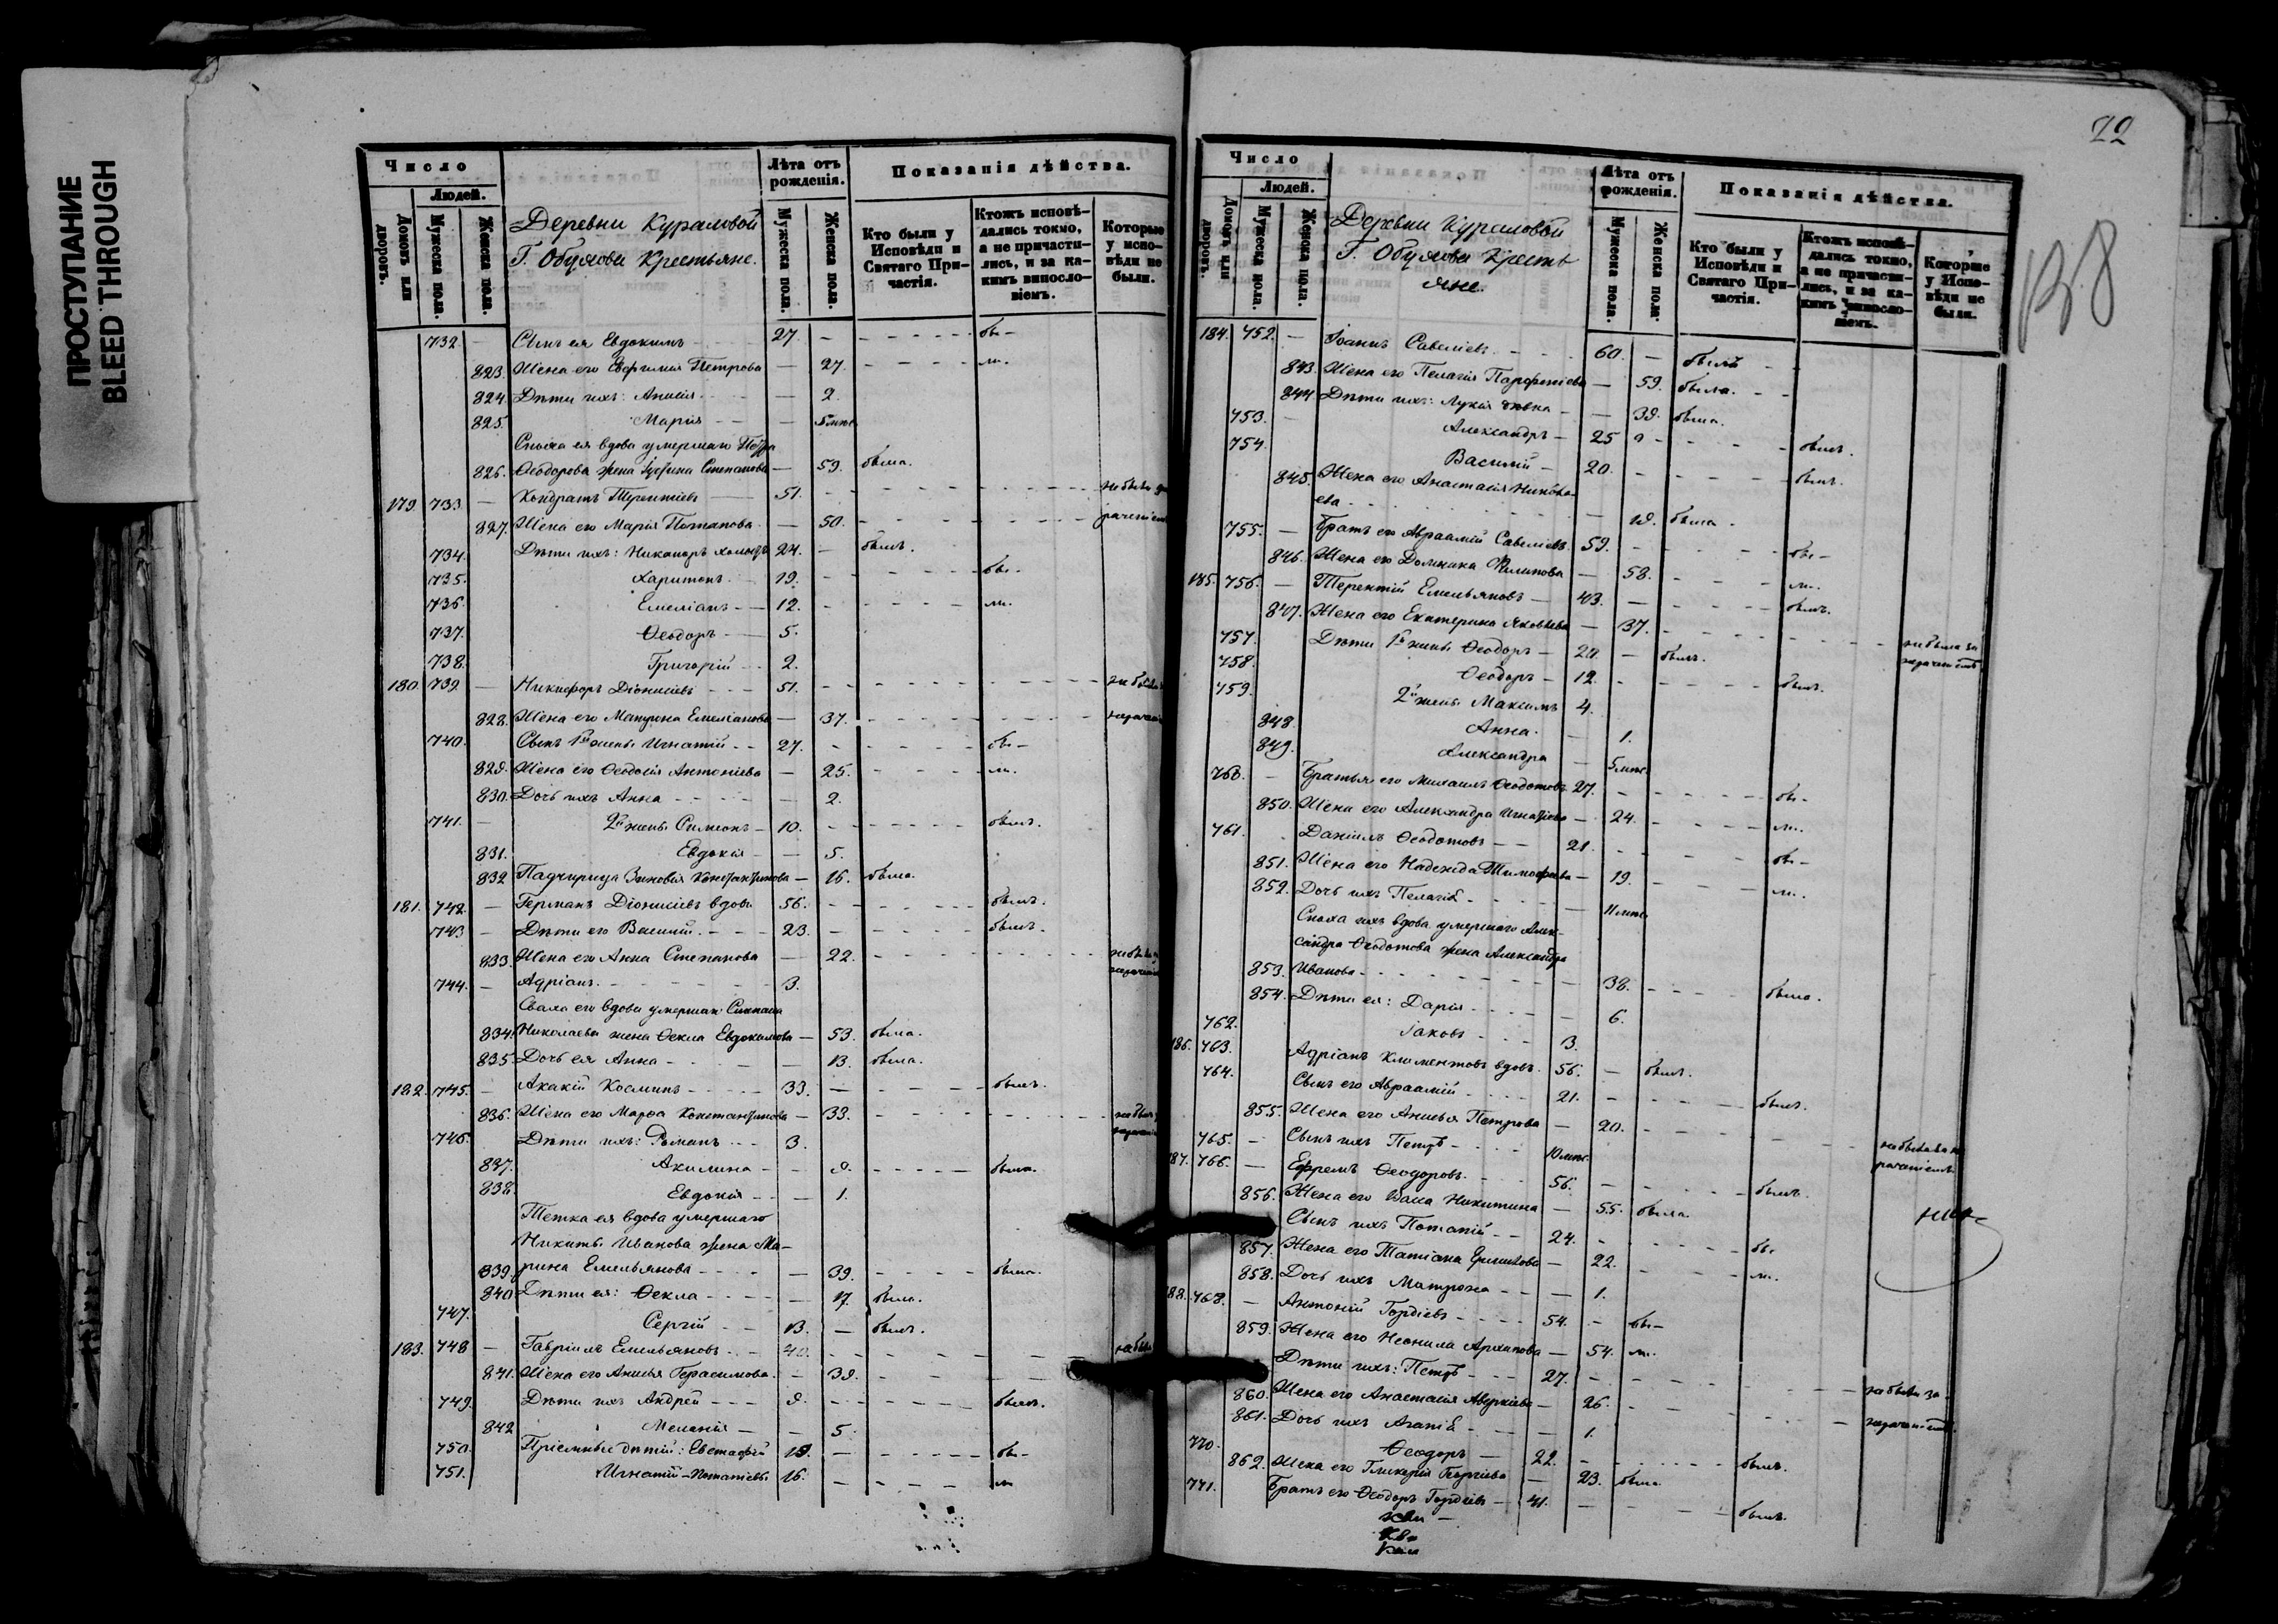 ПРОСТУПАНИЕ
BLEED THROUGH
Число
Людей.
Домовъ или дворовъ.
Мужеска пола.
Женска пола.
Деревни Кураловой
Г. Обухова Крестьяне.
Лѣта отъ рожденія.
Мужеска пола.
Женска пола.
Показанія дѣйства.
Кто были у Исповѣди и Святаго Причастія.
Ктожъ исповѣдались токмо, а не причастились, и за какимъ винословіемъ.
Которые у исповѣди не были.
732 — Сынъ ея Евдокимъ 27. — бы-
823. Жена его Евфимия Петрова — 27. ли.
824. Дѣти ихъ: Анисія — 2.
825. Марія — 5 мѣс.
Сноха ея вдова умершаго Петра
826. Ѳеодорова жена Ирина Степанова — 59. была.
179. 733 — Кондратъ Терентіевъ 51. не были за
827. Жена его Марія Потапова — 50. раченіем
734. Дѣти ихъ: Никаноръ холостъ 24. — былъ.
735. Харитонъ 19. бы-
736. Емеліанъ 12. ли.
737. Ѳеодоръ 5.
738. Григорій 2.
180. 739. — Никифоръ Діонисіевъ 51.
828. Жена его Матрона Емеліанова — 37.
740. Сынъ 1й жены Игнатій 27. бы-
829. Жена его Ѳеодосія Антоніева — 25. ли.
830. Дочь ихъ Анна — 2.
741. — 2й жены Симеонъ 10. былъ.
831. Евдокія — 5.
832 Падчерица Зиновія Константинова — 16. была.
181. 742. — Германъ Діонисіевъ вдовъ 56. былъ.
743 — Дѣти его Василій 23. былъ.
833. Жена его Анна Степанова — 22.
744. — Адріанъ 3.
Сваха его вдова умершаг
834. Николаева жена Ѳекла Евдокимова — 53. была.
835 Дочь ея Анна — 13. была.
182. 745. — Акакій Косминъ 33. былъ.
836. Жена его Марѳа Константинова — 33.
746. Дѣти ихъ: Романъ 3.
837. Акилина — 9. была.
838. Евдокія — 1.
Тетка ея вдова умершаго
Никиты Иванова жена Ма-
839. рина Емельянова — 39. была.
840. Дѣти ея: Ѳекла — 17. была.
747. Сергій 13. — былъ.
183. 748 — Гавріилъ Емельяновъ 40.
841. Жена его Анисья Герасимова — 39.
749. Дѣти ихъ Андрей 9. былъ.
842 Меланія — 5.
750. Пріемные дѣти: Евстафій 19. бы-
751. Игнатій Потапіевы 16. ли
22
Число
Людей.
Домовъ или дворовъ.
Мужеска пола.
Женска пола.
Деревни Кураловой
Г. Обухова Кресть
яне.
Лѣта отъ рожденія.
Мужеска пола.
Женска пола.
Показанія дѣйства.
Кто были у Исповѣди и Святаго Причастія.
Ктожъ исповѣдались токмо, а не причастились, и за какимъ винословіемъ.
Которые у Исповѣди не были.
184. 752. — Іоаннъ Савеліевъ 60. — былъ
843. Жена его Пелагія Парфеніева — 59. была.
844 Дѣти ихъ: Лукія — 39. была.
753. — Александръ 25 былъ.
754. Василій 20. былъ.
845. Жена его Анастасія Никола-
ева — 19. была.
755. — Братъ его Авраамій Савеліевъ 59. бы-
846. Жена его Домника Филипова — 58. ли.
185. 756. — Терентій Емельяновъ 43. былъ.
847. Жена его Екатерина Яковлева — 37. не была за
757. Дѣти 1й жены Ѳеодоръ 20. — былъ.
758. Ѳеодоръ 12. былъ.
759. 2й жены Максимъ 4.
848 Анна — 1.
849. Александра — 5 мѣс.
760. — Братья его Михаилъ Ѳеодотовъ 27. бы-
850. Жена его Александра Игнатіева — 24. ли.
761. Даніилъ Ѳеодотовъ 21. бы-
851. Жена его Надежда Тимофеева — 19. ли.
852. Дочь ихъ Пелагія — 11 мѣс.
Сноха ихъ вдова умершаго Алек-
сандра Ѳеодотова жена Александра
853. Иванова 38. была.
854. Дѣти ея: Дарія — 6.
762. Іаковъ 3.
186. 763. Адріанъ Климентовъ вдовъ 56. — былъ.
764. Сынъ его Авраамій 21. былъ.
855. Жена его Анисья Петрова — 20.
765. — Сынъ ихъ Петръ 10 мѣс.
187. 766. — Ефремъ Ѳеодоровъ 56. былъ.
856. Жена его Васса Никитина — 55. была.
Сынъ ихъ Потапій 24. бы-
857. Жена его Татіана — 22. ли.
858. Дочь ихъ Матрона — 1.
188. 768. — Антоній Гордіевъ 54. — бы-
859. Жена его Неонила Архипова — 54. ли.
Дѣти ихъ: Петръ 27. не были за
860. Жена его Анастасія Аверкіева — 26.
861. Дочь ихъ Агапія — 1.
770. Ѳеодоръ 22. былъ.
862. Жена его Гликерія Георгіева — 23. была
771. Братъ его Ѳеодоръ Гордіевъ 41. былъ.